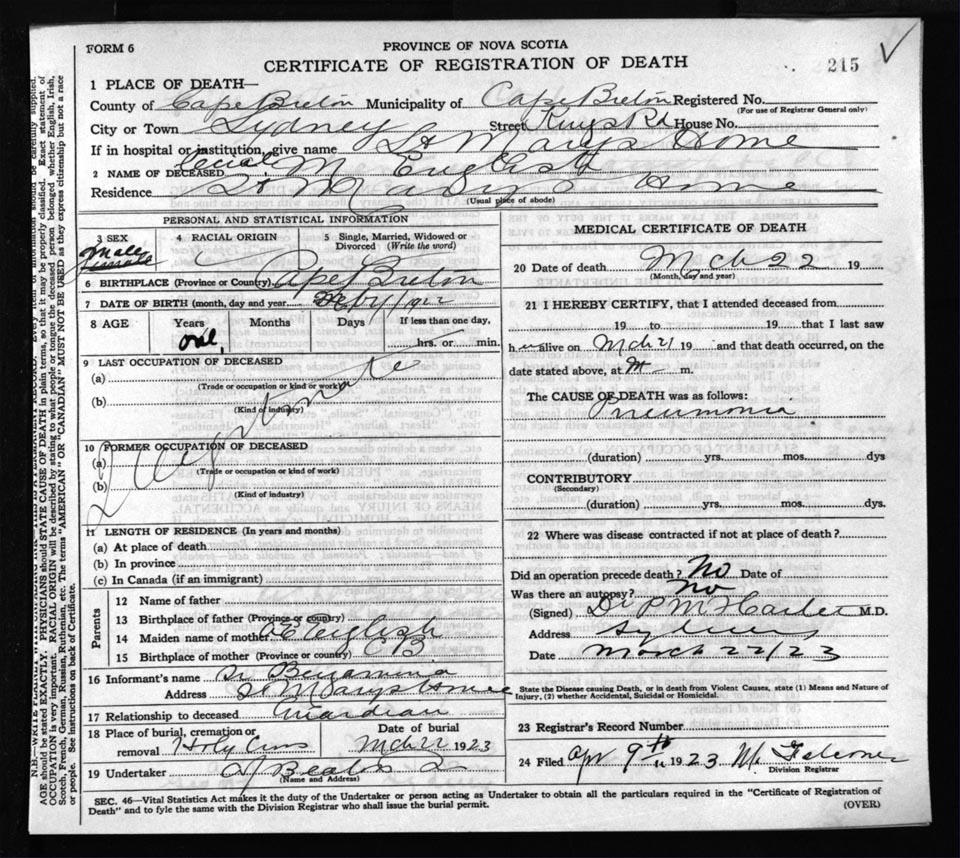 FORM 6
PROVINCE OF NOVA SCOTIA
CERTIFICATE OF REGISTRATION OF DEATH
215
1 PLACE OF DEATH—
County of Cape Breton Municipality of Cape Breton Registered No.
(For use of Registrar General only)
City or Town Sydney Street Kings Rd House No.
If in hospital or institution, give name St Marys Home
2 NAME OF DECEASED M. English
Residence St Marys Home
(Usual place of abode)
PERSONAL AND STATISTICAL INFORMATION
3 SEX
Male
female
4 RACIAL ORIGIN
5 Single, Married, Widowed or Divorced (Write the word)
6 BIRTHPLACE (Province or Country) Cape Breton
7 DATE OF BIRTH (month, day and year)
8 AGE
Years
Months
Days
If less than one day,
hrs. or min.
9 LAST OCCUPATION OF DECEASED
(a)
(Trade or occupation or kind or work)
(b)
(Kind of industry)
10 FORMER OCCUPATION OF DECEASED
(a)
(Trade or occupation or kind of work)
(b)
(Kind of industry)
11 LENGTH OF RESIDENCE (In years and months)
(a) At place of death
(b) In province
(c) In Canada (if an immigrant)
Parents
12 Name of father
13 Birthplace of father (Province or country)
14 Maiden name of mother English
15 Birthplace of mother (Province or country) C B
16 Informant's name Sr Benjamina
Address St Marys Home
17 Relationship to deceased Guardian
18 Place of burial, cremation or
removal Holy Cross
Date of burial
Mch 22 1923
19 Undertaker A J Beaton
(Name and Address)
MEDICAL CERTIFICATE OF DEATH
20 Date of death Mch 22 19
(Month, day and year)
21 I HEREBY CERTIFY, that I attended deceased from
19 to 19 that I last saw
h alive on Mch 21 19 and that death occurred, on the
date stated above, at m.
The CAUSE OF DEATH was as follows:
Pneumonia
(duration) yrs. mos. dys
CONTRIBUTORY
(Secondary)
(duration) yrs. mos. dys
22 Where was disease contracted if not at place of death?
Did an operation precede death? No Date of
Was there an autopsy? No
(Signed) Dr P M M.D.
Address Sydney
Date March 22/23
State the Disease causing Death, or in death from Violent Causes, state (1) Means and Nature of
Injury, (2) whether Accidental, Suicidal or Homicidal.
23 Registrar's Record Number
24 Filed Apr 9th 1923
Division Registrar
SEC. 46—Vital Statistics Act makes it the duty of the Undertaker or person acting as Undertaker to obtain all the particulars required in the "Certificate of Registration of
Death" and to fyle the same with the Division Registrar who shall issue the burial permit.
(OVER)
AGE should be stated EXACTLY. PHYSICIANS should STATE CAUSE OF DEATH in plain terms, so that it may be properly classified. Exact statement of
OCCUPATION is very important. RACIAL ORIGIN will be described by stating to what people or tongue the deceased person belonged whether English, Irish,
Scotch, French, German, Russian, Ruthenian, etc. The terms "AMERICAN" OR "CANADIAN" MUST NOT BE USED as they express citizenship but not a race
or people. See instructions on back of Certificate.